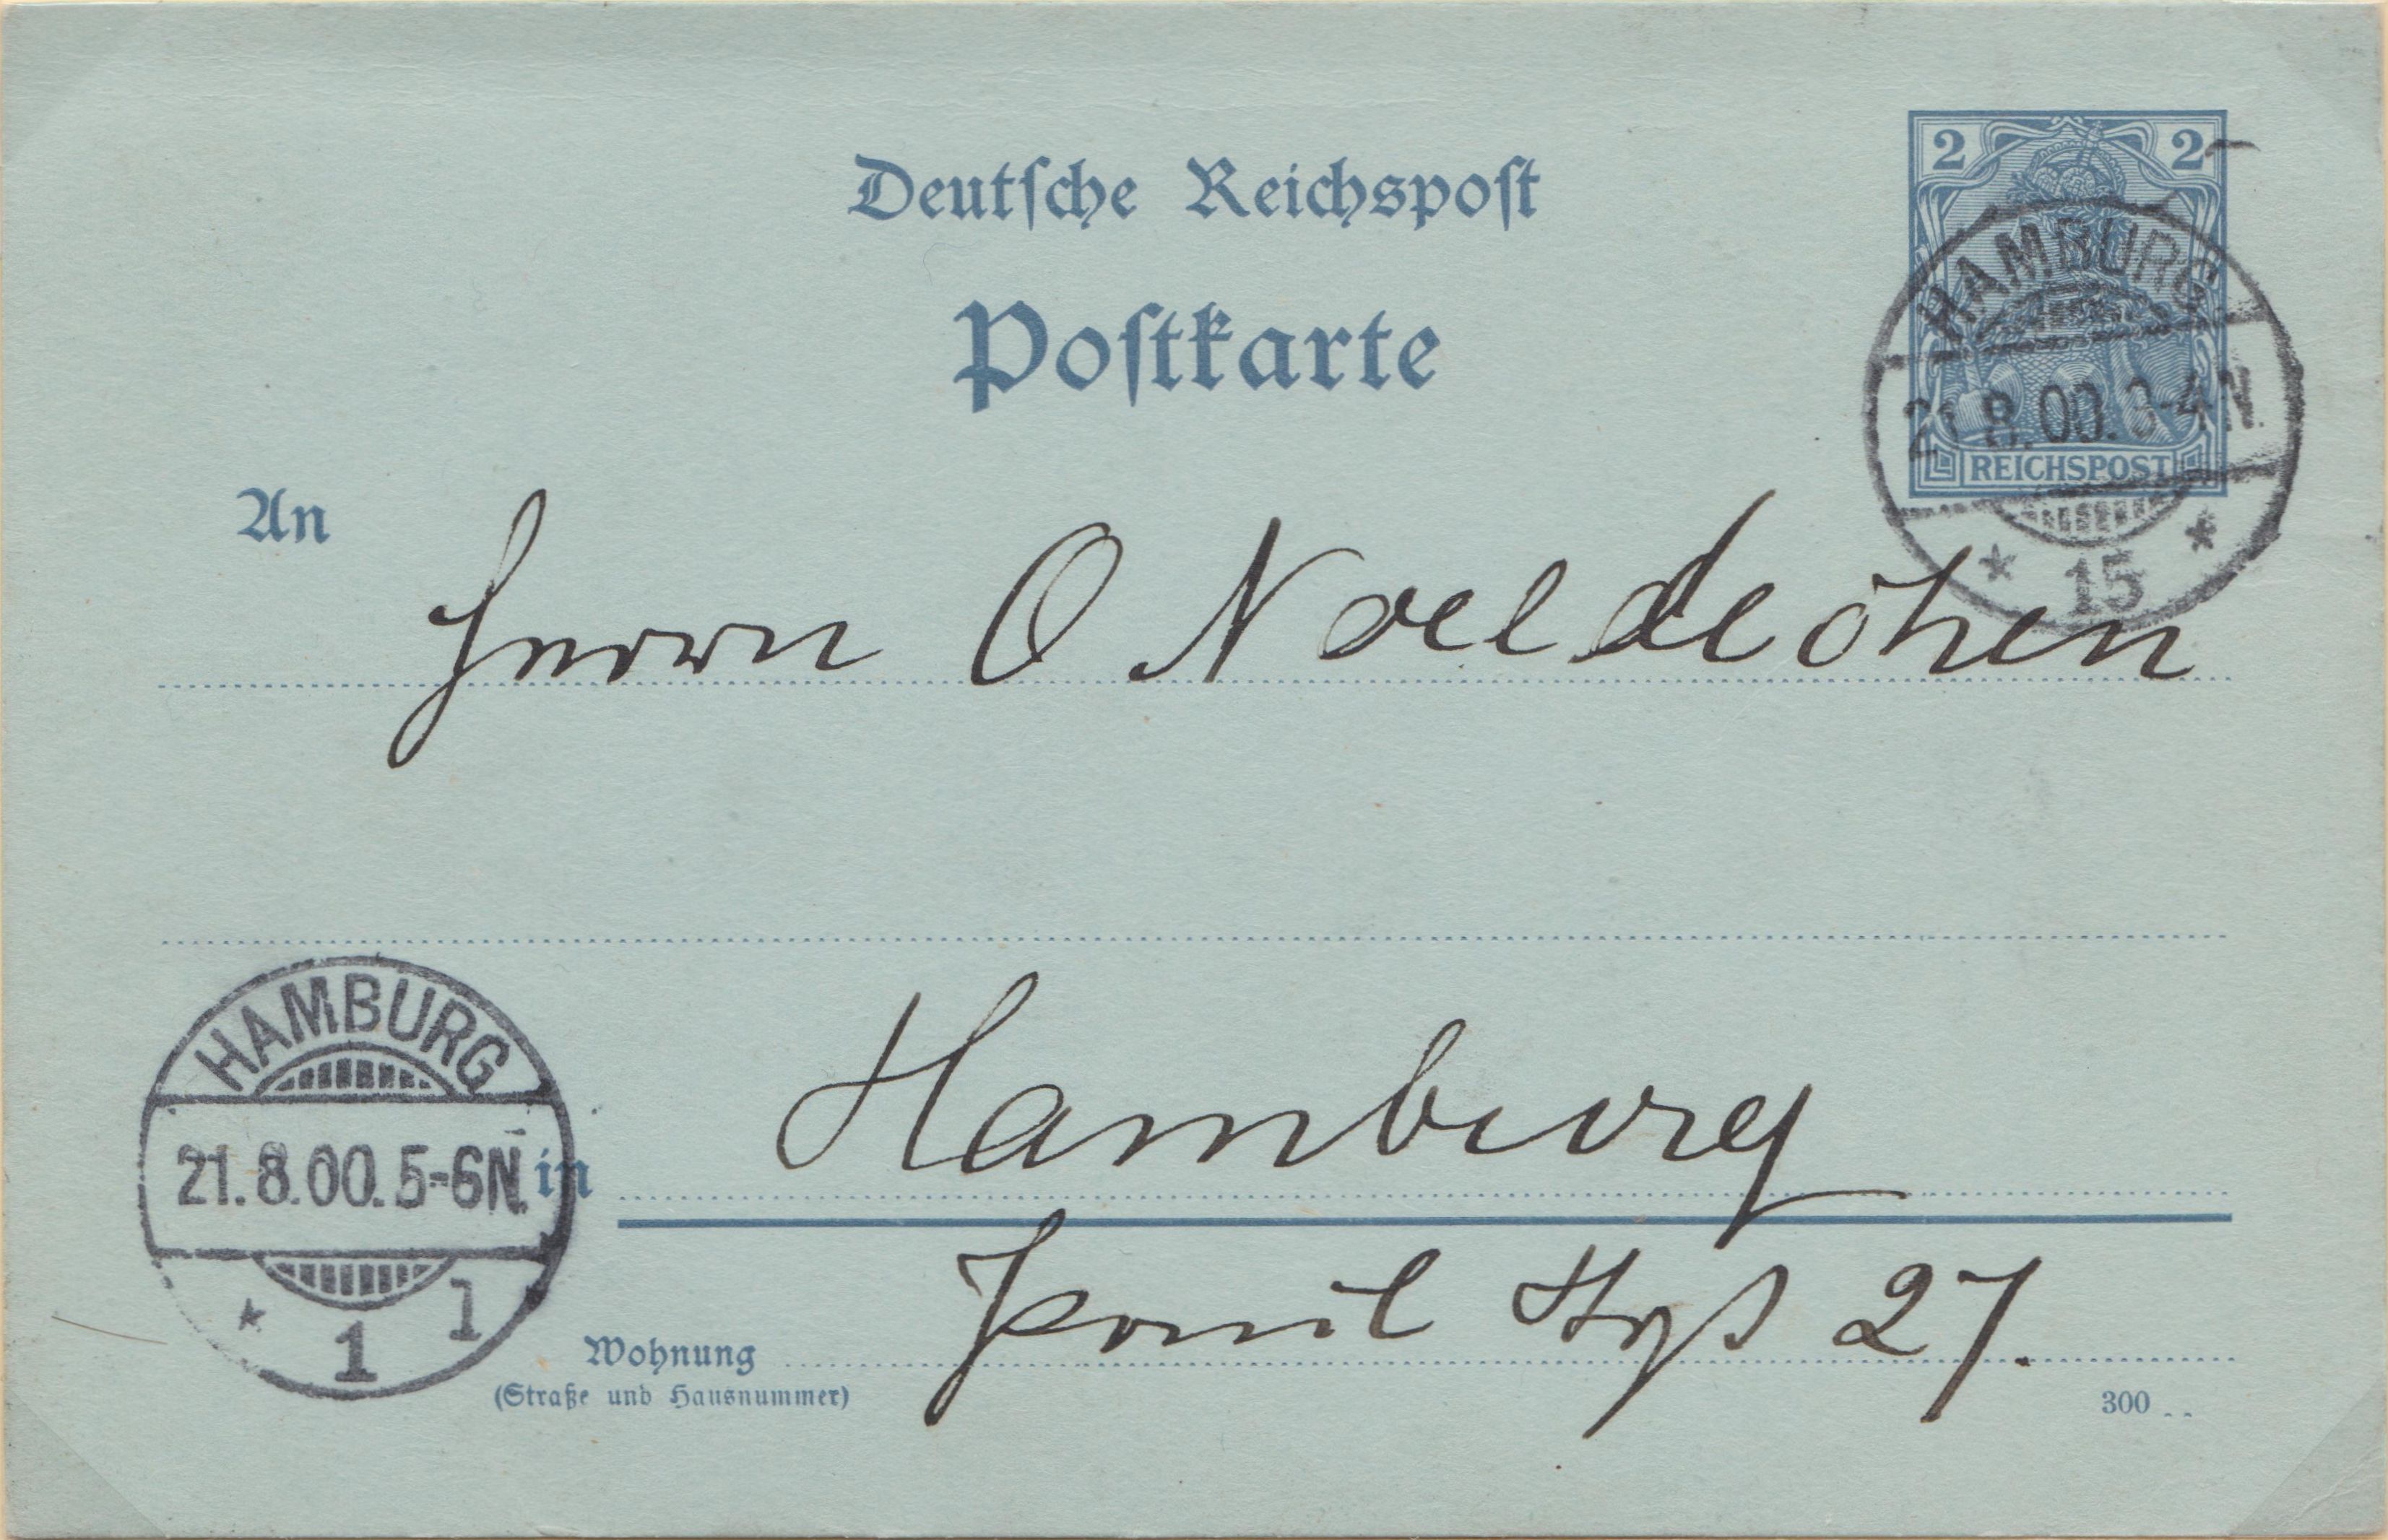 Deutsche Reichspost
2 2
Postkarte
HAMBURG
21.8.00.3-4N.
REICHSPOST
* 15 *
An Herrn O Noeldechen
HAMBURG
21.8.00.5-6N.
* 1 1
in Hamburg
Wohnung 27.
(Straße und Hausnummer)
300